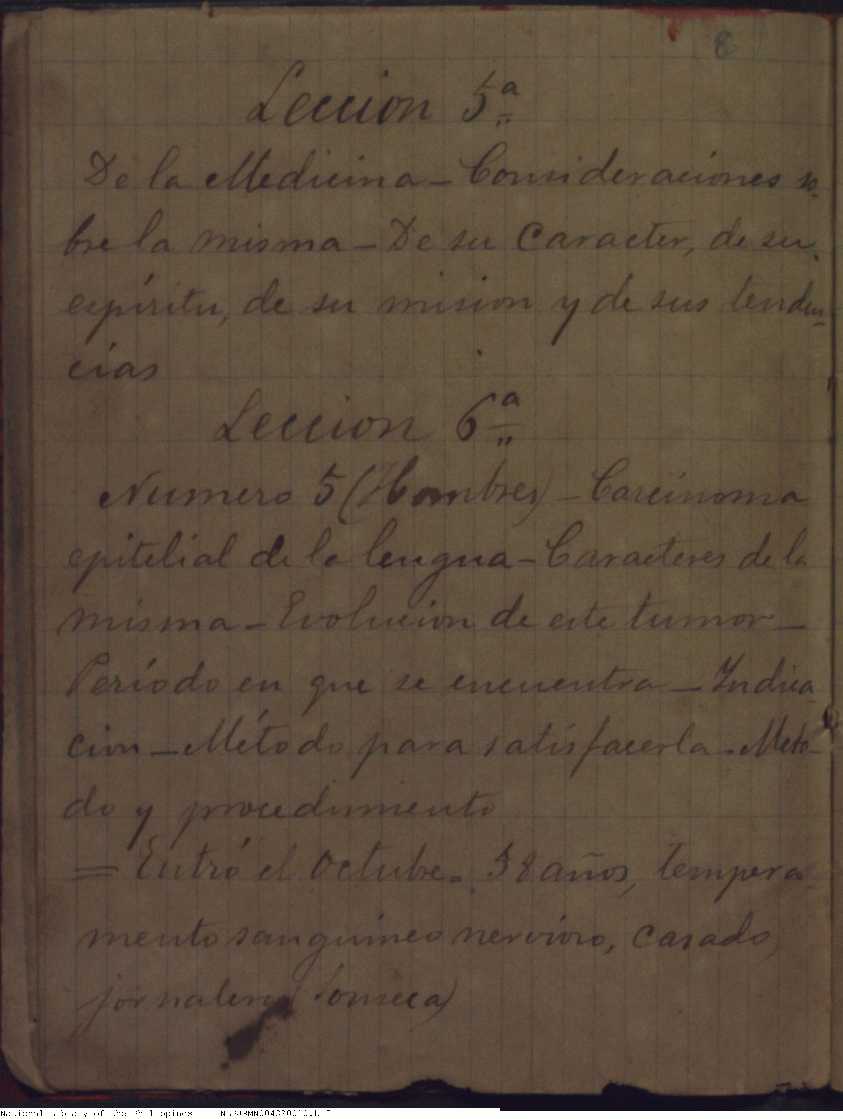 8
Leccion 5ª
De la Medicina – Consideraciones so-
bre la misma – De su Caracter, de su
espíritu, de su mision y de sus tenden-
cias
Leccion 6ª
Numero 5 (Hombres) – Carcinoma
epitelial de la lengua – Caracteres de la
misma – Evolucion de este tumor –
Período en que se encuentra – Indica-
cion – Método para satisfacerla – Meto-
do y procedimiento
= Entró el Octubre. 58 años, tempera
mento sanguineo nervioso, casado,
jornalero (Fonseca)
National Library of the Philippines